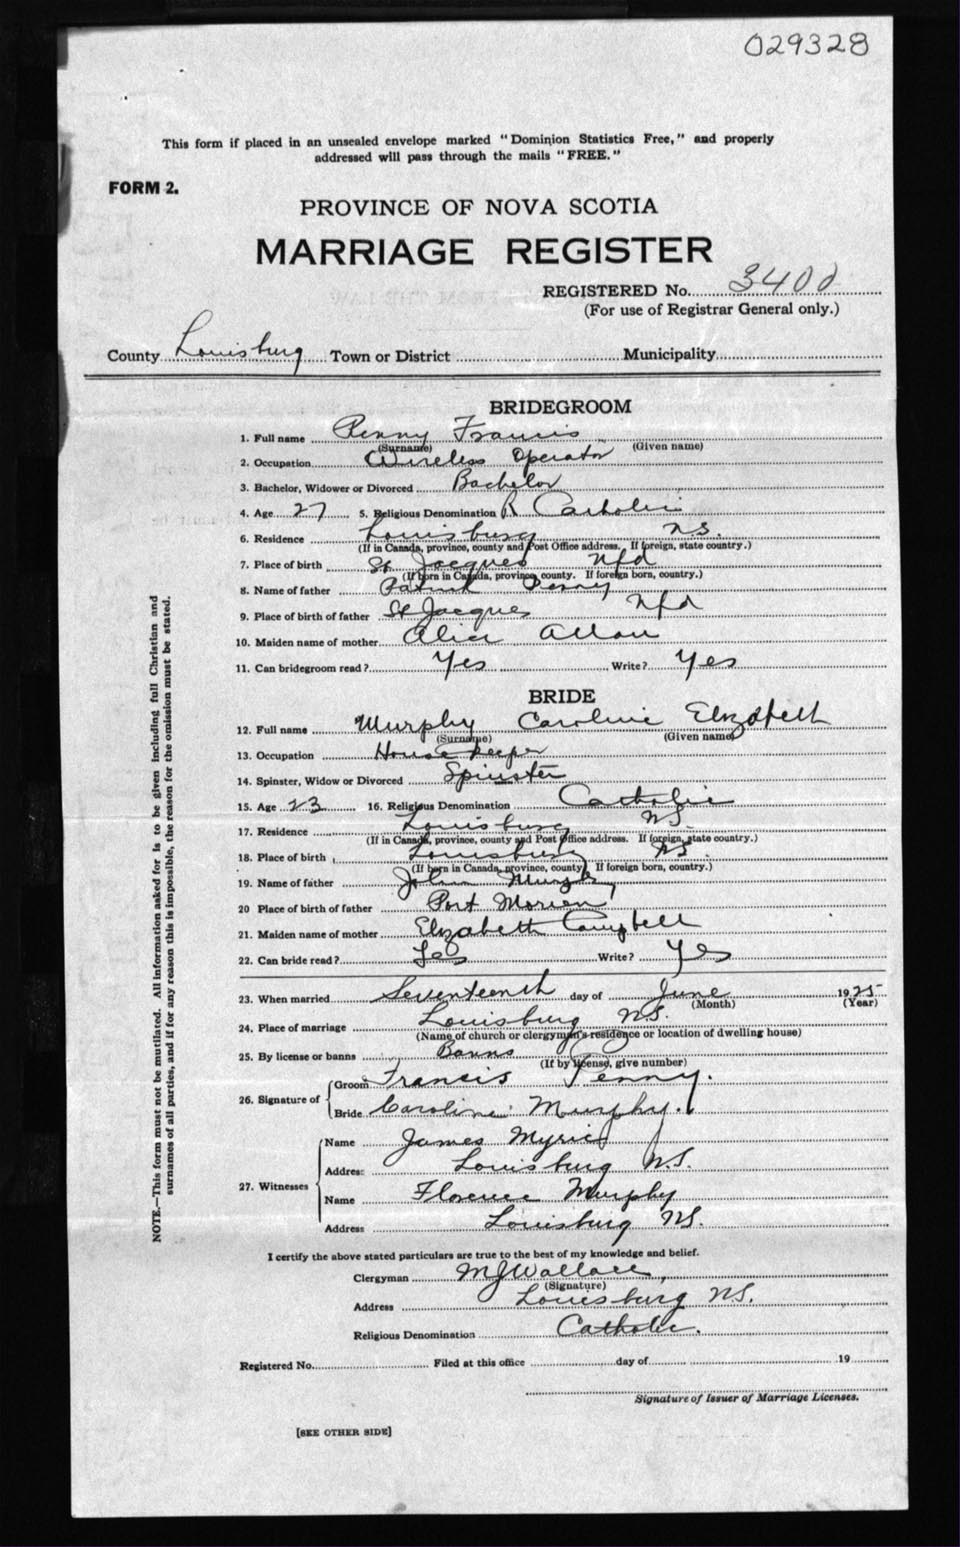 029328
This form if placed in an unsealed envelope marked "Dominion Statistics Free," and properly
addressed will pass through the mails "FREE."
FORM 2.
PROVINCE OF NOVA SCOTIA
MARRIAGE REGISTER
REGISTERED No. 3400
(For use of Registrar General only.)
County Louisburg Town or District Municipality
BRIDEGROOM
1. Full name Penny Francis
(Surname) (Given name)
2. Occupation Wireless Operator
3. Bachelor, Widower or Divorced Bachelor
4. Age 27 5. Religious Denomination R Catholic
6. Residence Louisburg N.S.
(If in Canada, province, county and Post Office address. If foreign, state country.)
7. Place of birth St Jacques Nfd
(If born in Canada, province, county. If foreign born, country.)
8. Name of father Patrick Penny
9. Place of birth of father St Jacques Nfd
10. Maiden name of mother Alice Allan
11. Can bridegroom read? Yes Write? Yes
BRIDE
12. Full name Murphy Caroline Elizabeth
(Surname) (Given name)
13. Occupation House Keeper
14. Spinster, Widow or Divorced Spinster
15. Age 23 16. Religious Denomination Catholic
17. Residence Louisburg N.S.
(If in Canada, province, county and Post Office address. If foreign, state country.)
18. Place of birth Louisburg N.S.
(If born in Canada, province, county. If foreign born, country.)
19. Name of father John Murphy
20 Place of birth of father Port Morien
21. Maiden name of mother Elizabeth Campbell
22. Can bride read? Yes Write? Yes
23. When married Seventeenth day of June 1925
(Month) (Year)
24. Place of marriage Louisburg N.S.
(Name of church or clergyman's residence or location of dwelling house)
25. By license or banns Banns
(If by license, give number)
26. Signature of Groom Francis Penny.
Bride Caroline Murphy.
27. Witnesses Name James Myrick
Address Louisburg N.S.
Name Florence Murphy
Address Louisburg N.S.
I certify the above stated particulars are true to the best of my knowledge and belief.
Clergyman M J Wallace
(Signature)
Address Louisburg N.S.
Religious Denomination Catholic.
Registered No. Filed at this office day of 19
Signature of Issuer of Marriage Licenses.
[SEE OTHER SIDE]
NOTE.—This form must not be mutilated. All information asked for is to be given including full Christian and
surnames of all parties, and if for any reason this is impossible, the reason for the omission must be stated.